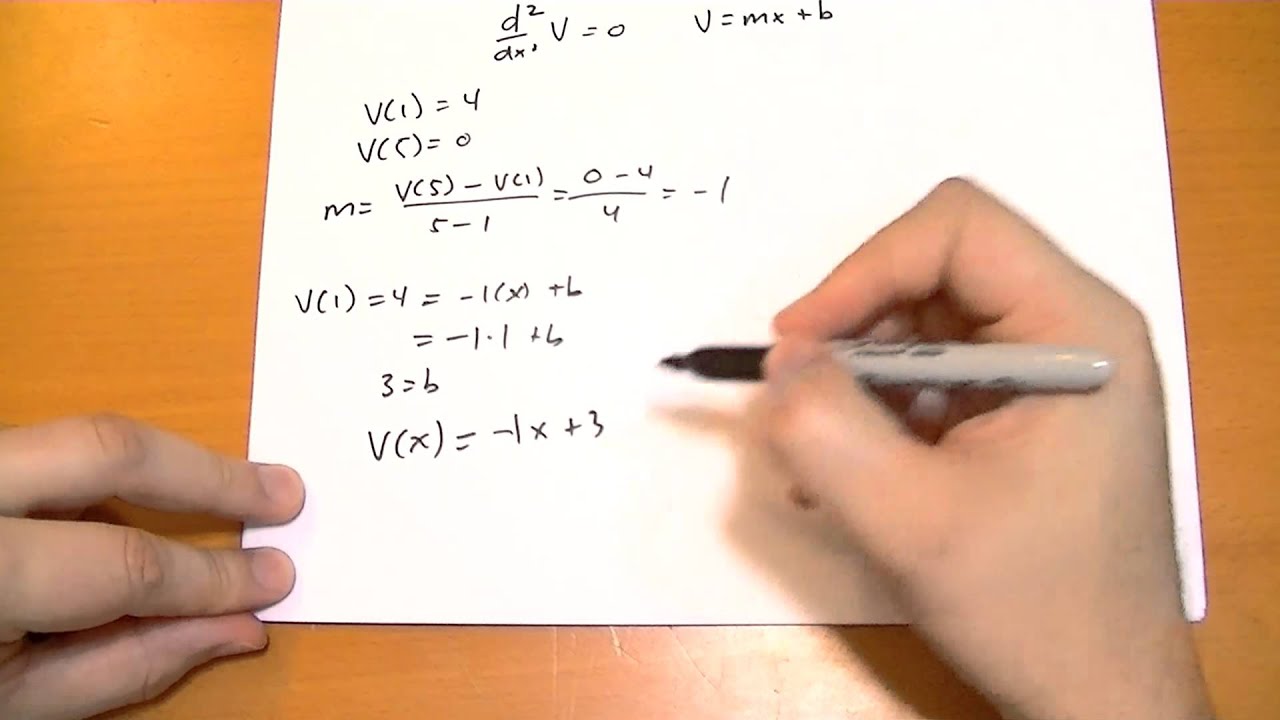 d²/dx² V = 0 V = mx + b
V(1) = 4
V(5) = 0
m = V(5) - V(1) / 5 - 1 = 0 - 4 / 4 = -1
V(1) = 4 = -1(x) + b
= -1·1 + b
3 = b
V(x) = -1x + 3